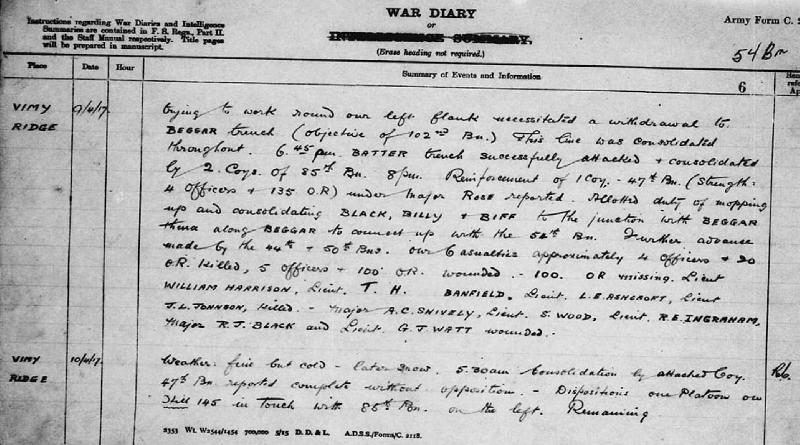 Instructions regarding War Diaries and Intelligence
Summaries are contained in F. S. Regs., Part II.
and the Staff Manual respectively. Title pages
will be prepared in manuscript.
WAR DIARY
or
INTELLIGENCE SUMMARY.
(Erase heading not required.)
Army Form C. 2
54 Bn
Place Date Hour Summary of Events and Information
6
VIMY RIDGE 9/4/17. trying to work round our left flank necessitated a withdrawal to
BEGGAR trench (objective of 102nd Bn.) This line was consolidated
throughout. 6.45 pm. BATTER trench successfully attacked & consolidated
by 2. Coys. of 85th Bn. 8pm. Reinforcement of 1 Coy. - 47th Bn. (Strength:
4 Officers & 135 O.R) under Major Rose reported. Allotted duty of mopping
up and consolidating BLACK, BILLY & BIFF to the junction with BEGGAR
thence along BEGGAR to connect up with the Bn. Further advance
made by the 44th & 50th Bns. Our casualties approximately 4 Officers & 20
O.R. killed, 5 Officers & 100 OR. wounded. - 100. OR missing. Lieut
WILLIAM HARRISON, Lieut. T. H. BANFIELD, Lieut. L.E. ASHCROFT, Lieut
J.L. JOHNSON, killed. - Major A.C. SNIVELY, Lieut. S. WOOD, Lieut. R.E. INGRAHAM,
Major R.J. BLACK and Lieut. G.T. WATT wounded.
VIMY RIDGE 10/4/17. Weather: fine but cold - later snow. 5.30am Consolidation by attached Coy.
47th Bn reported complete without opposition. - Dispositions one Platoon on
Hill 145 in touch with 85th Bn. on the left. Remaining
2353 Wt. W2544/1454 700,000 5/15 D. D. & L. A.D.S.S./Forms/C. 2118.